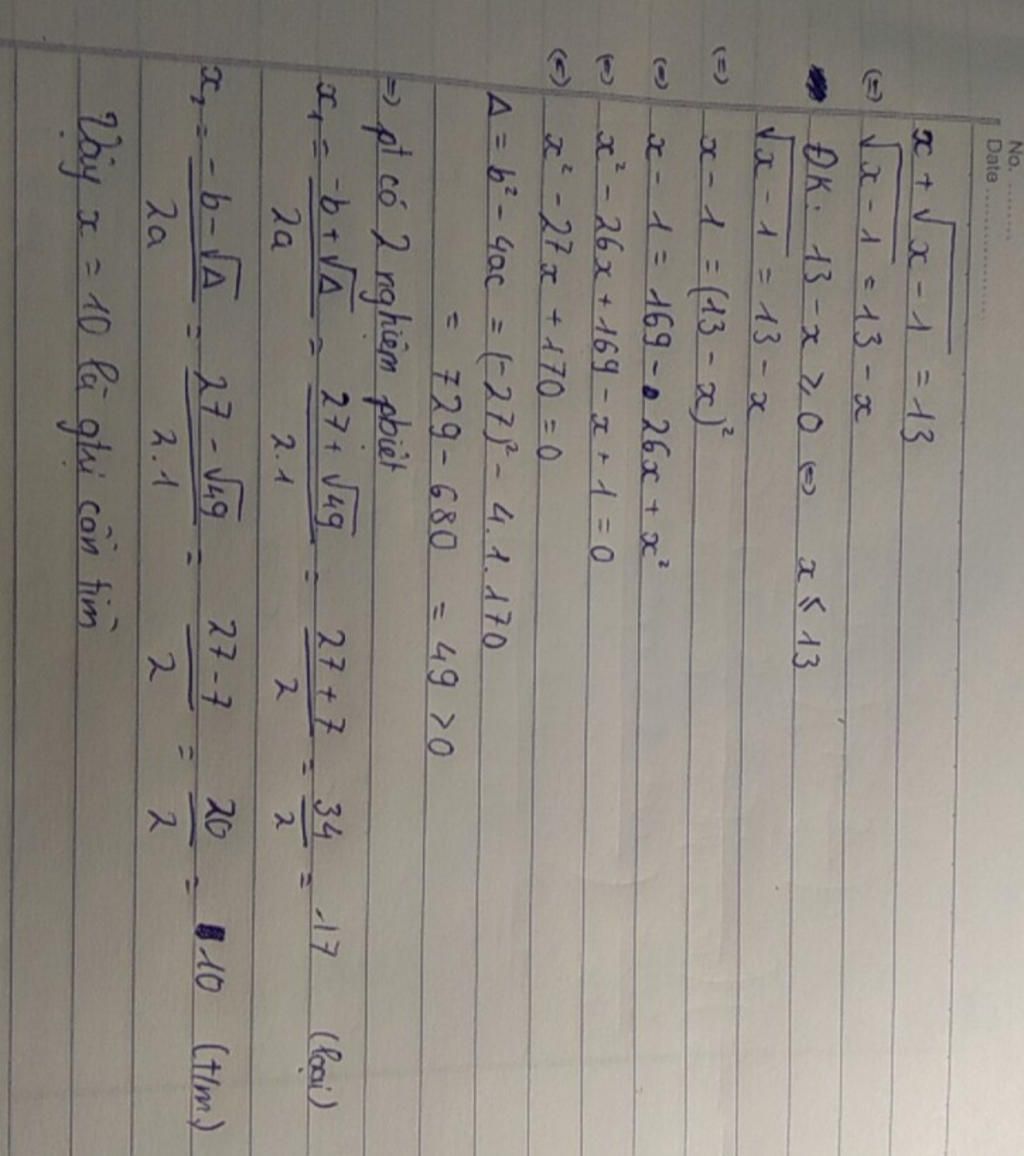 No. ........
Date ..................
x + √x - 1 = 13
(=) √x - 1 = 13 - x
ĐK: 13 - x ≥ 0 (=) x ≤ 13
√x - 1 = 13 - x
(=) x - 1 = (13 - x)²
(=) x - 1 = 169 - 26x + x²
(=) x² - 26x + 169 - x + 1 = 0
(=) x² - 27x + 170 = 0
Δ = b² - 4ac = (-27)² - 4.1.170
= 729 - 680 = 49 > 0
=) pt có 2 nghiệm pbiệt
x₁ = -b + √Δ / 2a = 27 + √49 / 2.1 = 27 + 7 / 2 = 34 / 2 = 17 (loại)
x₂ = -b - √Δ / 2a = 27 - √49 / 2.1 = 27 - 7 / 2 = 20 / 2 = 10 (t/m)
Vậy x = 10 là gtrị cần tìm